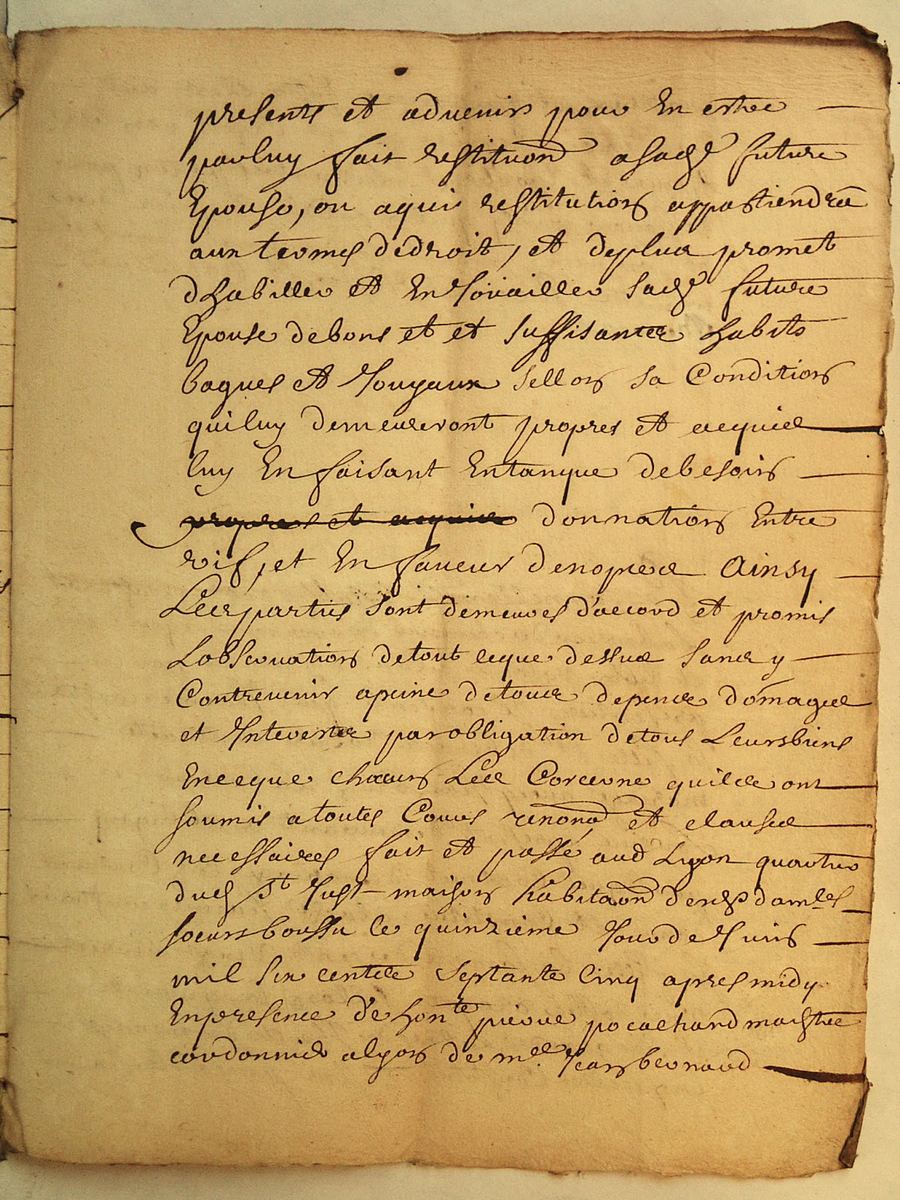 presents et advenir pour En estre
par luy fait restituon^ a sad^e future
Epouse, ou a qui restitution appartiendra
aux termes dedroit, et deplus promet
dhabiller et Enjoüailler sad^e future
Epouse debons et et suffisantes habits
bagues et Jouyaux sellon sa Condition
quiluy demeureront propres et acquis
luy En faisant Entanque debesoin
propres et acquis donnation Entre
vif, et En faveur denopces Ainsy
Les parties sont demeures d'accord et promis
Lobservation detout ceque dessus sans y
Contrevenir apeine detous depens domages
et Interets par obligation detous Leursbiens
Enceque chacun Les Concerne quils ont
soumis atoutes Cours renonc^on et clauses
necessaires fait et passé aud Lyon quartier
dud St Just maison habitaon^ desd dam^les
soeurs boussu le quinzieme Jour de Juin
mil six centz septante cinq apres midy
Enpresence d'hon^te pierre pocachard maistre
cordonnier alyon de m^re Jean bernard